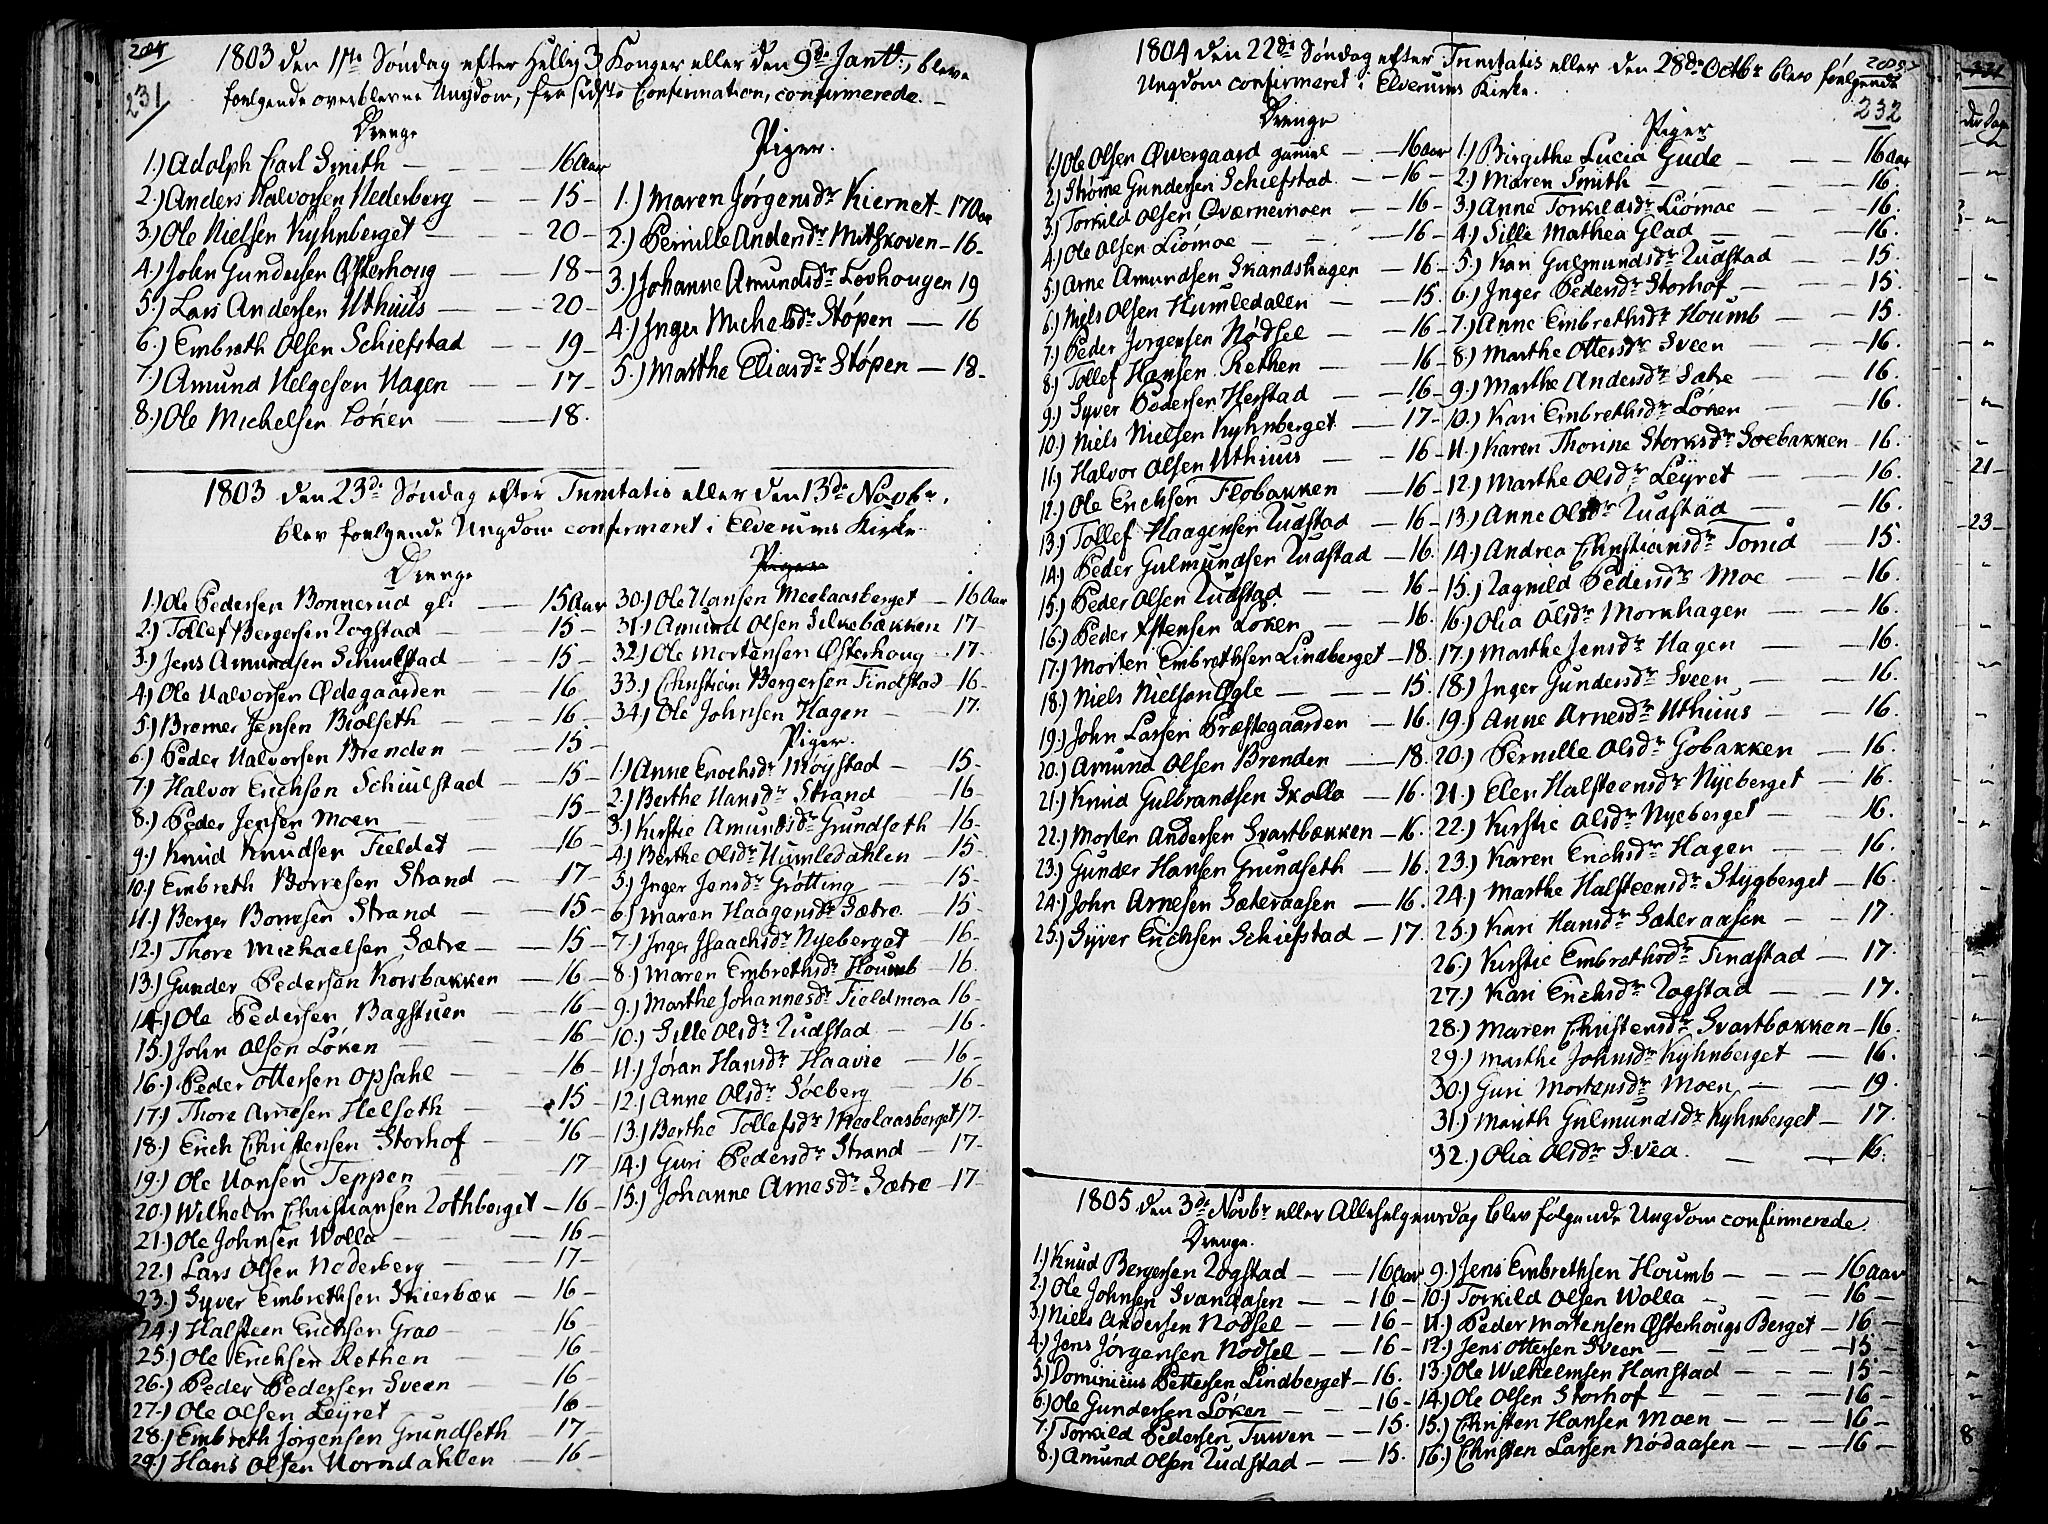 204
231
1803 den 1ste Søndag efter Hellig 3 Konger eller den 9de Janv:, bleve
følgende overblevne Ungdom, fra sidste Confirmation, confirmerede.
Drenge
1.) Adolph Carl Smith — 16 Aar
2.) Anders Halvorsen Nederberg — 15 -
3.) Ole Nielsen Kyhnberget — 20 -
4.) John Gundersen Østerhoug — 18 -
5.) Lars Andersen Uthuus — 20 -
6.) Embreth Olsen Schiefstad — 19 -
7.) Amund Helgesen Hagen — 17 -
8.) Ole Michelsen Løken — 18.
Piger.
1.) Maren Jørgensdr Kiernet - 17 Aar
2.) Pernille Andersdr Mitskoven - 16 -
3.) Johanne Amundsdr Lovhougen 19
4.) Inger Michelsdr Støpen — 16
5.) Marthe Eliasdr Støpen — 18 -
1803 den 23de Søndag efter Trinitatis eller den 13de Novbr.
blev følgende Ungdom confirmeret i Elverums Kirke.
Drenge
1.) Ole Pedersen Bonnerud gl: — 15 Aar
2.) Tollef Bergersen Rogstad — 15 -
3.) Jens Amundsen Schiulstad — 15 -
4.) Ole Halvorsen Ødegaarden — 16
5.) Bremer Jensen Biølseth — 16 -
6.) Peder Halvorsen Brenden — 15 -
7.) Halvor Erichsen Schiulstad — 15 -
8.) Peder Jensen Moen — 15 -
9.) Knud Knudsen Fieldet — 16 -
10.) Embreth Borresen Strand — 17 -
11.) Berger Borresen Strand — 15 -
12.) Thore Michaelsen Sætre — 15 -
13.) Gunder Pedersen Korsbakken — 16 -
14.) Ole Pedersen Bagstuen — 16 -
15.) John Olsen Løken — 16 -
16.) Peder Ottersen Opsahl — 16 -
17.) Thore Arnesen Helseth — 15 -
18.) Erich Christensen Storhof — 16 -
19.) Ole Hansen Teppen — 17 -
20.) Wilhelm Christiansen Rothberget — 16 -
21.) Ole Johnsen Wolla — 16 -
22.) Lars Olsen Nederberg — 17 -
23.) Syver Embrethsen Skierbæk — 16 -
24.) Halsteen Erichsen Grao — 16 -
25.) Ole Erichsen Rethen — 16 -
26.) Peder Pedersen Sveen — 16 -
27.) Ole Olsen Leyret — 16 -
28.) Embreth Jørgensen Grundseth — 17 -
29.) Hans Olsen Horndahlen — 16 -
Piger
30.) Ole Hansen Meelaasberget — 16 Aar
31.) Amund Olsen Silkebækken 17 -
32.) Ole Mortensen Østerhoug - 17 -
33.) Christian Bergersen Findstad - 16 -
34.) Ole Johnsen Hagen — 17.
Piger.
1.) Anne Enochsdr Møystad — 15 -
2.) Berthe Hansdr Strand — 16 -
3.) Kirstie Amundsdr Grundseth — 16 -
4.) Berthe Olsdr Humledahlen — 15 -
5.) Inger Jensdr Grøtting — 15 -
6.) Maren Haagensdr Sætre — 15 -
7.) Inger Isaachsdr Nyeberget — 16 -
8.) Maren Embrethsdr Houmb — 16.
9.) Marthe Johannesdr Fieldmora 16 -
10.) Sille Olsdr Rudstad — 16 -
11.) Jøran Hansdr Haavie — 16 -
12.) Anne Olsdr Søeberg — 16 -
13.) Berthe Tollefsdr Meelaasberget 17 -
14.) Guri Pedersdr Strand — 17 -
15.) Johanne Arnesdr Sætre — 17 -
1804 den 22de Søndag efter Trinitatis eller den 28de Octbr blev følgende
Ungdom confirmeret i Elverums Kirke.
232
Drenge
1.) Ole Olsen Qvergaard gamel — 16 Aar
2.) Størne Gundersen Schiefstad — 16 -
3.) Torkild Olsen Qværnemoen — 16 -
4.) Ole Olsen Liømoe — 16 -
5.) Arne Amundsen Skandshagen — 16 -
6.) Niels Olsen Humledalen — 15.
7.) Peder Jørgensen Nødsel — 16 -
8.) Tollef Hansen Rethen — 16
9.) Syver Pedersen Herstad — 16 -
10.) Niels Nielsen Kyhnberget — 17 -
11.) Halvor Olsen Uthuus — 16 -
12.) Ole Erichsen Flobakken — 16 -
13.) Tollef Haagensen Rudstad — 16 -
14.) Peder Gulmundsen Rudstad — 16.
15.) Peder Olsen Rudstad — 16 -
16.) Peder Østensen Løken — 16.
17.) Morten Embrethsen Lindberget — 18.
18.) Niels Nielsen Øgle — 15.
19.) John Larsen Præstegaarden — 16.
20.) Amund Olsen Brenden — 18.
21.) Knud Gulbrandsen Skolla — 16.
22.) Morten Andersen Svartbækken — 16.
23.) Gunder Hansen Grundseth — 16.
24.) John Arnesen Sæteraasen — 16.
25.) Syver Erichsen Schiefstad — 17.
Piger
1.) Birgithe Lucia Gude — 16 Aar
2.) Maren Smith — 16.
3.) Anne Torkildsdr Liømoe — 16.
4.) Sille Mathea Glad — 16.
5.) Kari Gulmundsdr Rudstad — 15.
6.) Inger Pedersdr Storhof — 15.
7.) Anne Embrethsdr Houmb — 15.
8.) Marthe Ottersdr Sveen — 16.
9.) Marthe Andersdr Satre — 16.
10.) Kari Embrethsdr Løken — 16.
11.) Karen Thorine Storksdr Soebakken — 16.
12.) Marthe Olsdr Leyret — 16.
13.) Anne Olsdr Rudstad — 16.
14.) Andrea Christiansdr Tonid — 15.
15.) Ragnild Pedersdr Moe — 16.
16.) Olia Olsdr Mornhagen — 16.
17.) Marthe Jensdr Hagen — 16.
18.) Inger Gundersdr Sveen — 16.
19.) Anne Arnesdr Uthuus — 16.
20.) Pernille Olsdr Gobakken — 16.
21.) Elen Halsteensdr Nyeberget — 16.
22.) Kirstie Olsdr Nyeberget — 16.
23.) Karen Erichsdr Hagen — 16.
24.) Marthe Halsteensdr Stygberget — 16.
25.) Kari Hansdr Sæteraasen — 17.
26.) Kirstie Embrethsdr Findstad — 17.
27.) Kari Erichsdr Rogstad — 17.
28.) Maren Christensdr Svartbækken — 16.
29.) Marthe Johnsdr Kyhnberget — 16.
30.) Guri Mortensdr Moen — 19.
31.) Marith Gulmundsdr Kyhnberget — 17.
32.) Olia Olsdr Svea. — 16.
1805 den 3de Novbr eller Allehelgensdag blev følgende Ungdom confirmerede.
Drenge.
1.) Knud Bergersen Rogstad — 16 Aar
2.) Ole Johnsen Svenaasen — 16 -
3.) Niels Andersen Nødsel — 16 -
4.) Jens Jørgensen Nødsel — 16 -
5.) Dominicus Pettersen Lindberget — 16.
6.) Ole Gundersen Løken — 16 -
7.) Torkild Pedersen Tuven — 15.
8.) Amund Olsen Rudstad — 15.
9.) Jens Embrethsen Houmb — 16 Aar
10.) Torkild Olsen Wolla — 16 -
11.) Peder Mortensen Østerhougs Berget — 16 -
12.) Jens Ottersen Sveen — 15 -
13.) Ole Wilhelmsen Hanstad — 15 -
14.) Ole Olsen Storhof — 16 -
15.) Christen Hansen Moen — 16 -
16.) Christen Larsen Nødaasen — 16 -
21 -
23 -
8